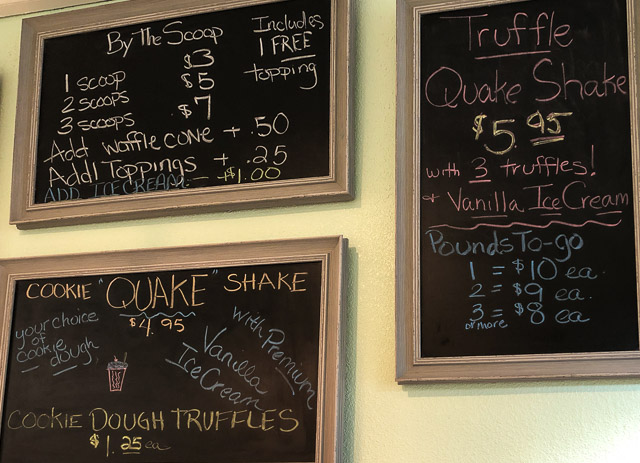 By The Scoop
Includes
1 FREE
topping
1 scoop $3
2 scoops $5
3 scoops $7
Add waffle cone + .50
Addl Toppings + .25
ADD ICE CREAM - - +$1.00
Truffle
Quake Shake
$5.95
with 3 truffles!
+ Vanilla Ice Cream
Pounds To-go
1 = $10 ea.
2 = $9 ea.
3 = $8 ea
or more
COOKIE "QUAKE" SHAKE
$4.95
your choice
of
cookie
dough
with Premium
Vanilla
Ice Cream
COOKIE DOUGH TRUFFLES
$1.25 ea